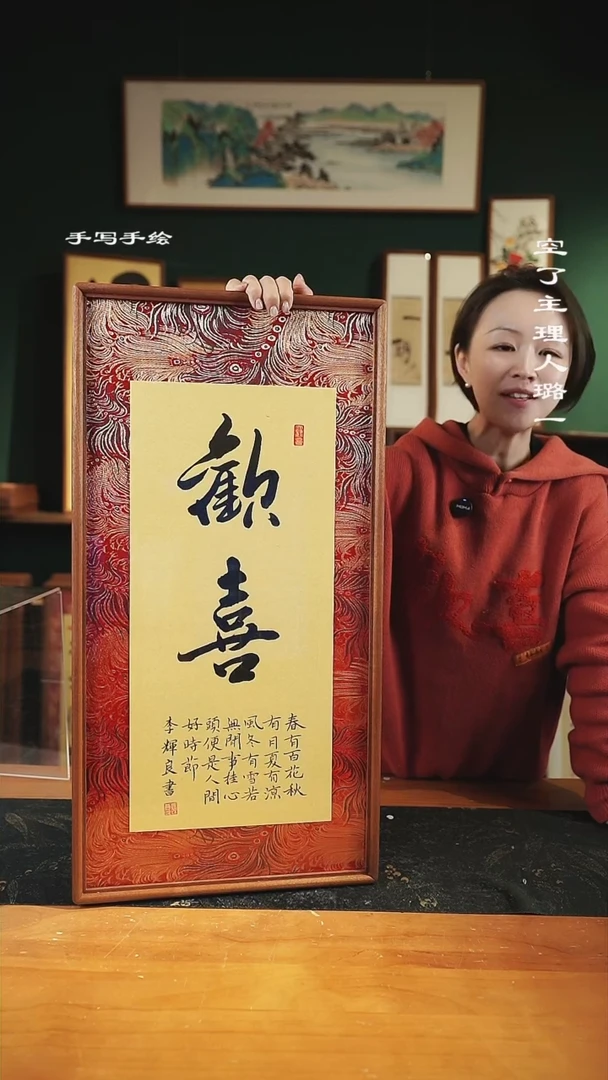 手写手绘
空了主理人璐一
歡喜
春有百花秋
有月夏有涼
風冬有雪若
無閒事挂心
頭便是人間
好時節
李輝良書